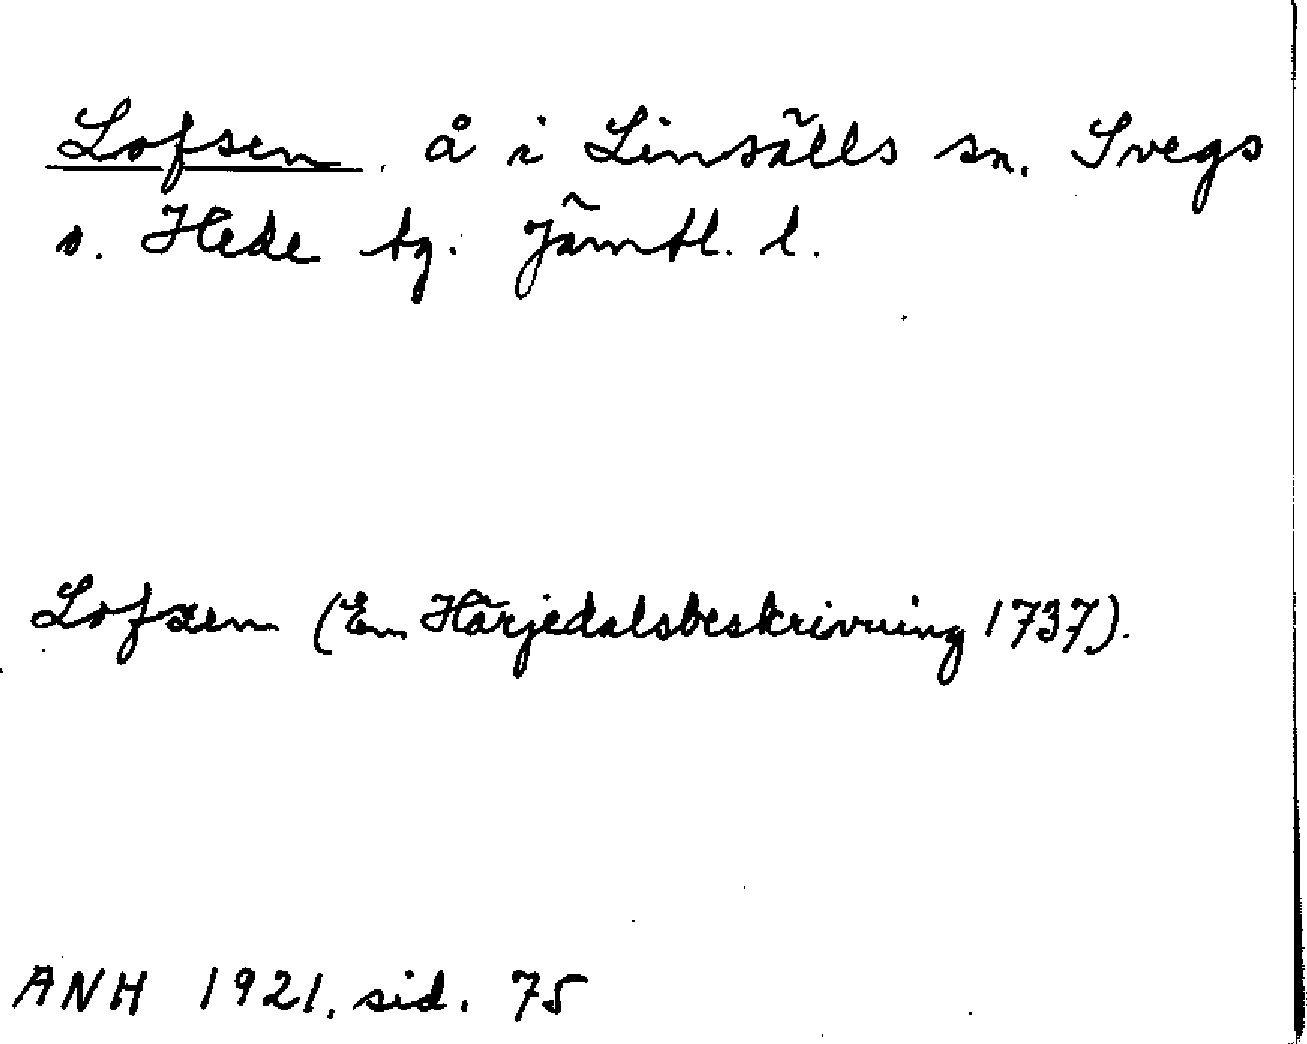 Lofsen. å i Linsälls sn. Svegs
o. Hede tg. Jämtl. l.
Lofsen (En Härjedalsbeskrivning 1737).
ANH 1921. sid. 75